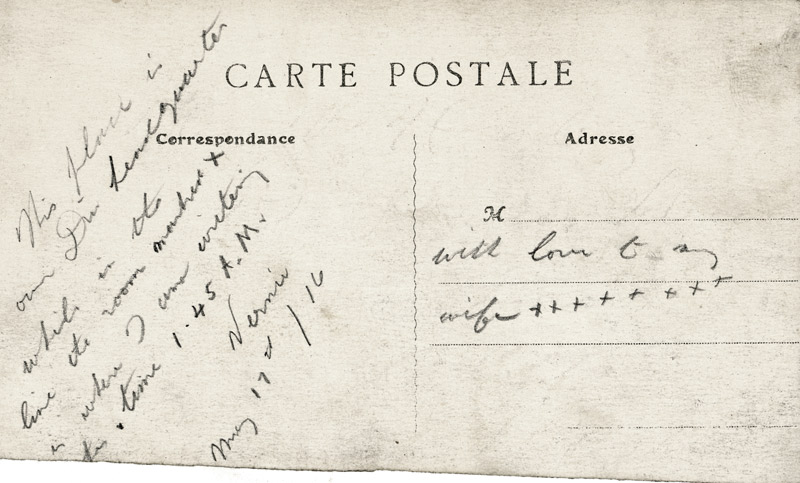 CARTE POSTALE
Correspondance
Adresse
This place is
our Div headquarter
while in the
line the room marked x
is when I am writing
this. time 1.45 A.M.
Vernie
May 17 /16
M
with love to my
wife ++++++++